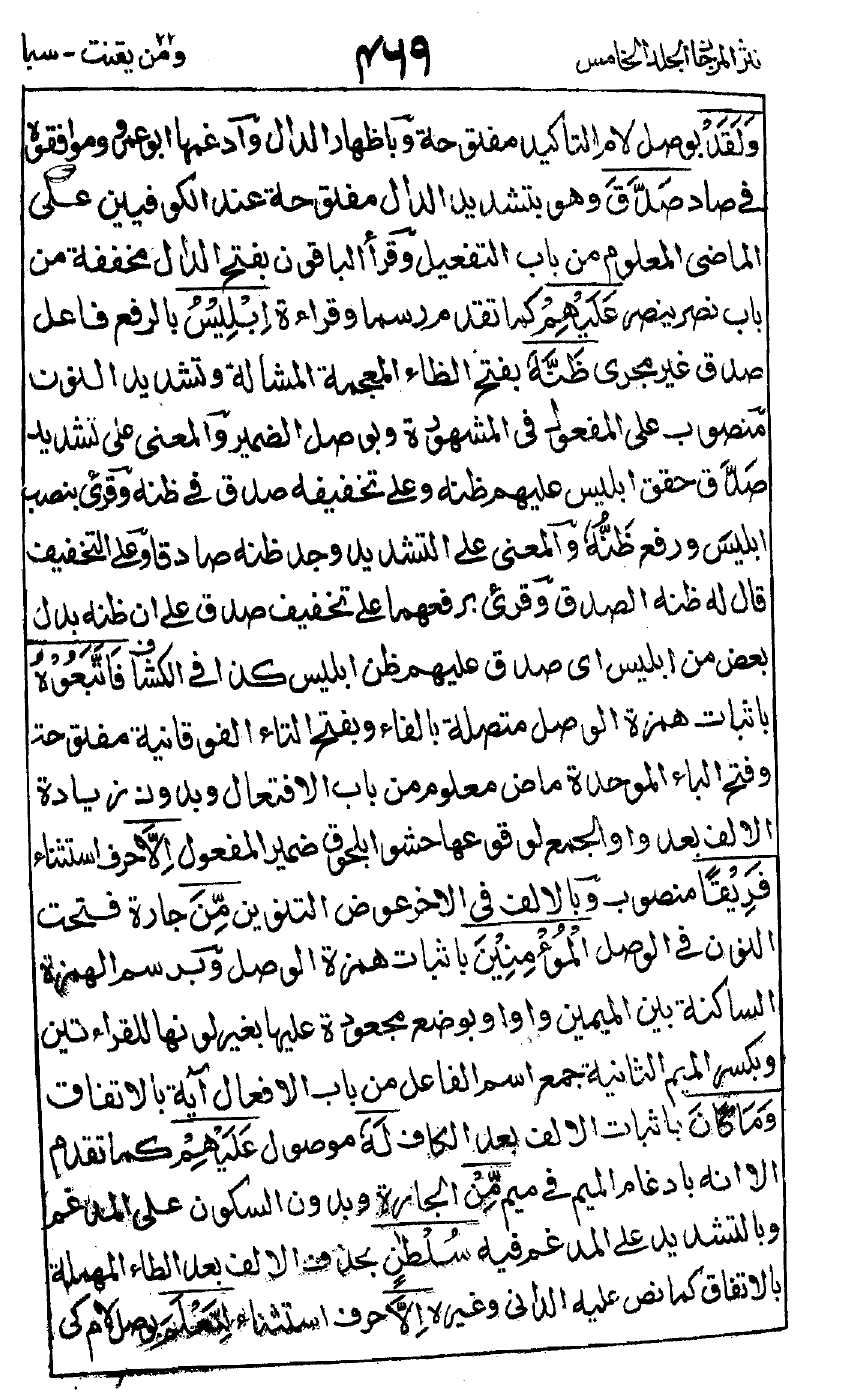 نثر المرجان الجلد الخامس ٤٦٩ ومن يقنت ٢٢ - سبا
وَلَقَدْ بوصل لام التأكيد مفتوحة وباظهار الدال وآدغمها ابو عمرو وموافقوه
في صاد صَدَّقَ وهو بتشديد الدال مفتوحة عند الكوفيين على
الماضى المعلوم من باب التفعيل وقرأ الباقون بفتح الدال مخففة من
باب نصر ينصر عَلَيْهِمْ كما تقدم رسما وقراءة اِبْلِيْسُ بالرفع فاعل
صدق غير مجرى ظَنَّهٗ بفتح الظاء المعجمة المشالة وتشديد النون
منصوب على المفعول فى المشهورة وبوصل الضمير والمعنى على تشديد
صَدَّق حقق ابليس عليهم ظنه وعلى تخفيفه صدق في ظنه وقرئ بنصب
ابليسَ ورفع ظَنُّهٗ والمعنى على التشديد وجد ظنه صادقا وعلى التخفيف
قال له ظنه الصدق وقرئ برفعهما على تخفيف صدق على ان ظنه بدل
بعض من ابليس اى صدق عليهم ظن ابليس كذا في الكشاف فَاتَّبَعُوْهُ
باثبات همزة الوصل متصلة بالفاء وبفتح التاء الفوقانية مفتوحة
وفتح الباء الموحدة ماض معلوم من باب الافتعال وبدون زيادة
الالف بعد واو الجمع لوقوعها حشوا بلحوق ضمير المفعول اِلَّا حرف استثناء
فَرِيْقًا منصوب وبالالف في الاخر عوض التنوين مِّنَ جارة فتحت
النون في الوصل الْمُؤْمِنِيْنَ باثبات همزة الوصل وبرسم الهمزة
الساكنة بين الميمين واوا وبوضع مجعودة عليها بغير لونها للقراءتين
وبكسر الميم الثانية جمع اسم الفاعل من باب الافعال آية بالاتفاق
وَمَا كَانَ باثبات الالف بعد الكاف لَهٗ موصول عَلَيْهِمْ كما تقدم
الا انه بادغام الميم في ميم مِّنْ الجارة وبدون السكون على المدغم
وبالتشديد على المدغم فيه سُلْطٰنٍ بحذف الالف بعد الطاء المهملة
بالاتفاق كما نص عليه الدانى وغيره اِلَّا حرف استثناء لِنَعْلَمَ بوصل لام كى